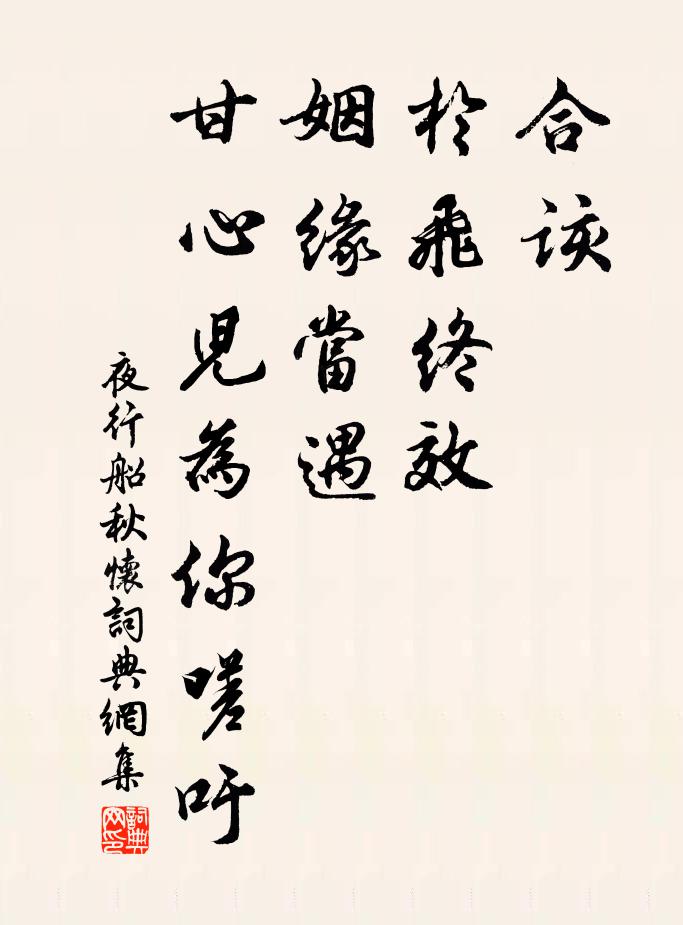 合該
於飛終效
姻緣當遇
甘心兒為你嗟吁
夜行船秋懷詞典網集
詞典網印